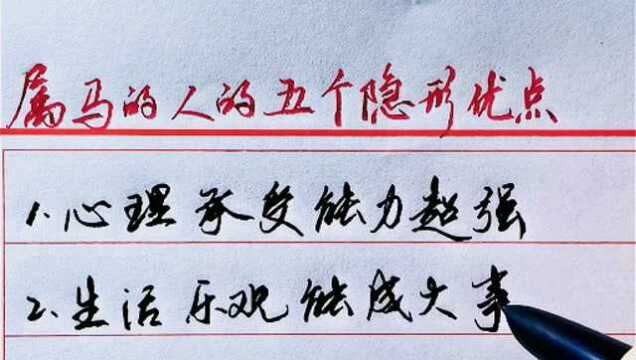 属马的人的五个隐形优点
1.心理承受能力超强
2.生活乐观能成大事